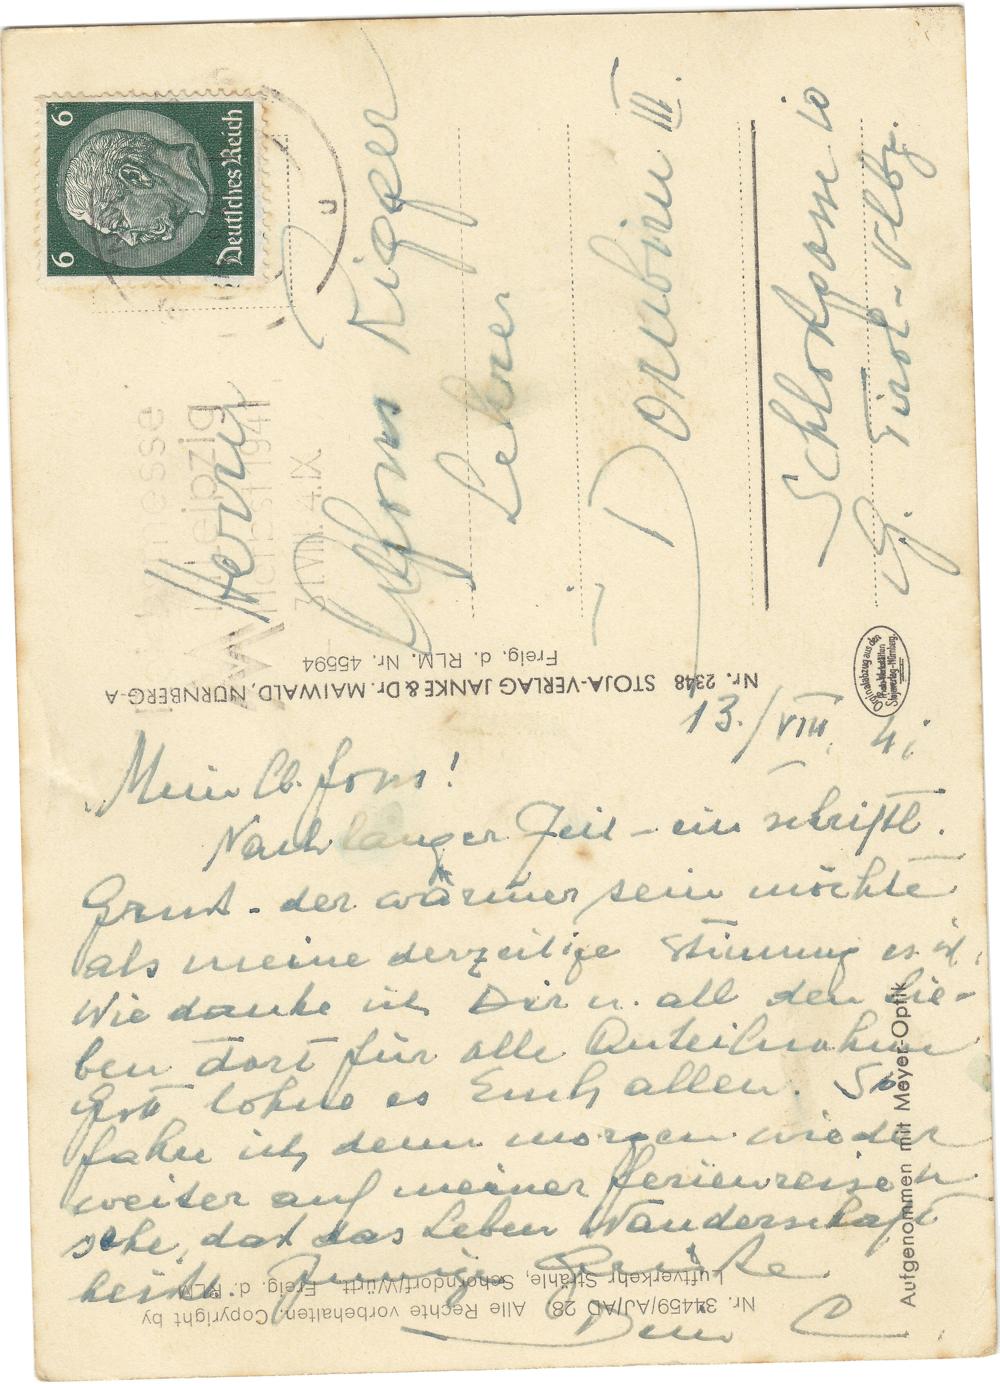 6
6
Deutsches Reich
Leipzig
31.VIII. 4.IX.
Herrn
Alfons Rigger
Lehrer
Dornbirn III.
Schlossgasse 10
G. Tirol-Vlbg.
Nr. 2348 STOJA-VERLAG JANKE & Dr. MAIWALD, NÜRNBERG-A
Freig. d. RLM. Nr. 45594
Originalabzug aus den
13./VIII. 41
Mein lb. Fons!
Nach langer Zeit - ein schriftl.
Gruss - der wärmer sein möchte
als meine derzeitige Stimmung es ist.
Wie danke ich Dir u. all den Lie-
ben dort für alle Anteilnahme
Gott lohne es Euch allen. So
fahre ich denn morgen wieder
weiter auf meiner Ferienreise u.
sehe, dass das Leben Wanderschaft
heisst. Innige Grüsse
Dein C
Aufgenommen mit Meyer-Optik
Nr. 34459/AJ/AD 28 Alle Rechte vorbehalten. Copyright by
Luftverkehr Strähle, Schorndorf/Württ. Freig. d. RLM